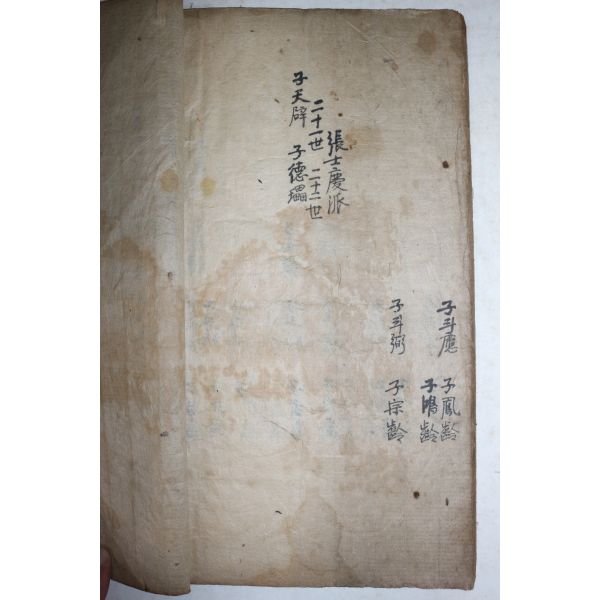 子斗應 子鳳齡
子鴻齡
子斗弼 子宗齡
張士慶派
二十一世 二十二世
子天辟 子德